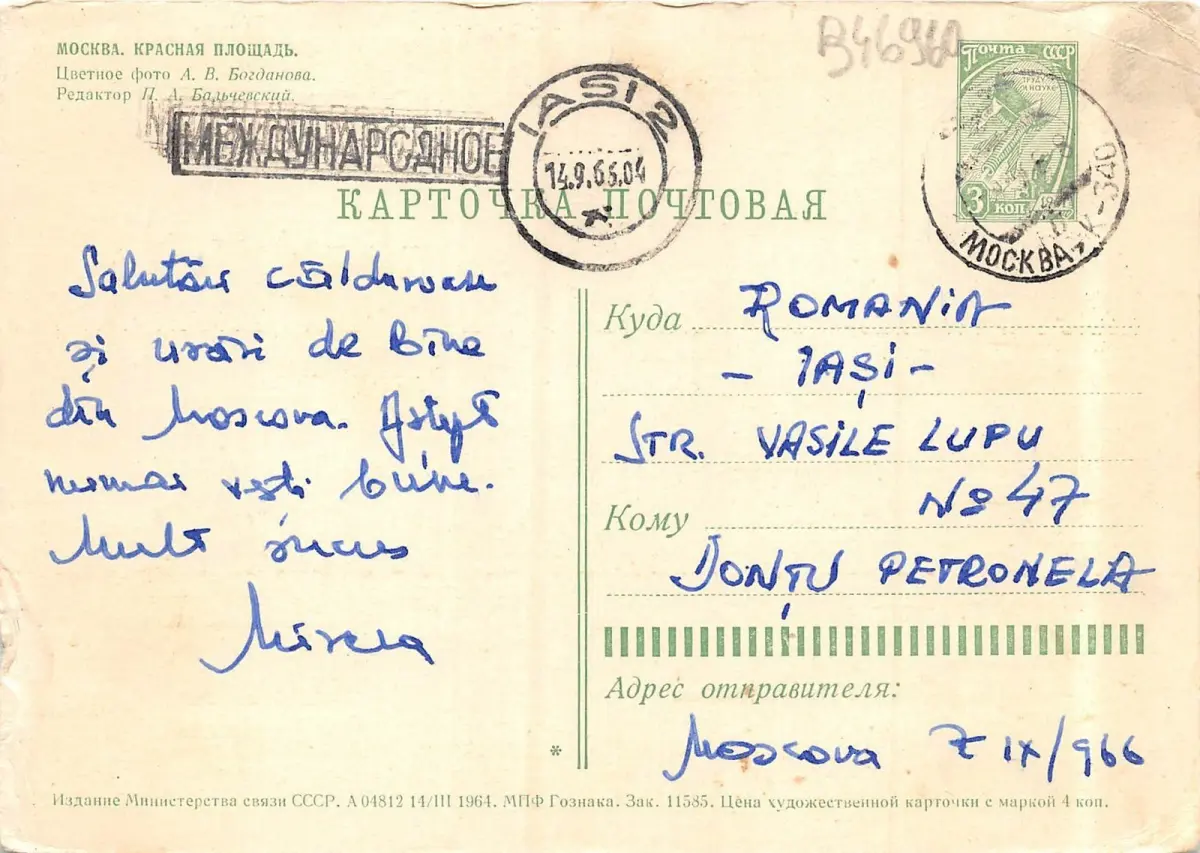 МОСКВА. КРАСНАЯ ПЛОЩАДЬ.
Цветное фото А. В. Богданова.
Редактор П. А. Бальчевский.
МЕЖДУНАРОДНОЕ
IASI 2
14.9.66.04
В46960
Почта СССР
3 коп
МОСКВА, К-340
КАРТОЧКА ПОЧТОВАЯ
Salutări călduroase
și urări de bine
din Moscova. Aștept
numai vești bune.
Mult succes
Mircea
Куда ROMANiA
- IAȘi -
STR. VASiLE LUPU
No 47
Кому
DONȚU PETRONELA
Адрес отправителя:
Moscova 7 IX/966
*
Издание Министерства связи СССР. А 04812 14/III 1964. МПФ Гознака. Зак. 11585. Цена художественной карточки с маркой 4 коп.